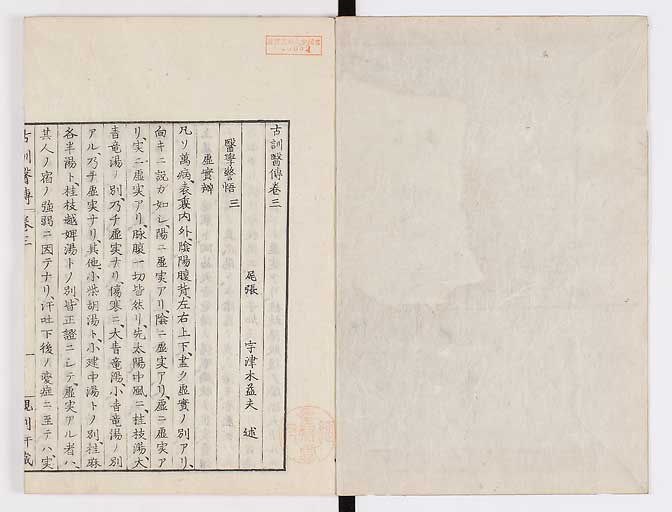 古訓醫傳卷三
尾張 宇津木益夫 述
醫學警悟 三
虛實辨
凡ソ萬病、表裏内外、陰陽腹背、左右上下、盡ク虛實ノ別アリ、
向キニ説ガ如シ、陽ニ虛実アリ、陰ニ虛実アリ、虛ニ虛実ア
リ、実ニ虛実アリ、脉腹一切皆然リ、先太陽中風ニ、桂枝湯、大
青竜湯ノ別、乃チ虛実ナリ、傷寒ニ、大青竜湯、小青竜湯ノ別
アル乃チ虛実ナリ、其他、小柴胡湯ト、小建中湯トノ別、桂麻
各半湯ト、桂枝越婢湯トノ別、皆正證ニシテ、虛実アル者ハ、
其人ノ宿ノ強弱ニ因テナリ、汗吐下後ノ變症ニ至テハ、実
古訓醫傳 卷三 一